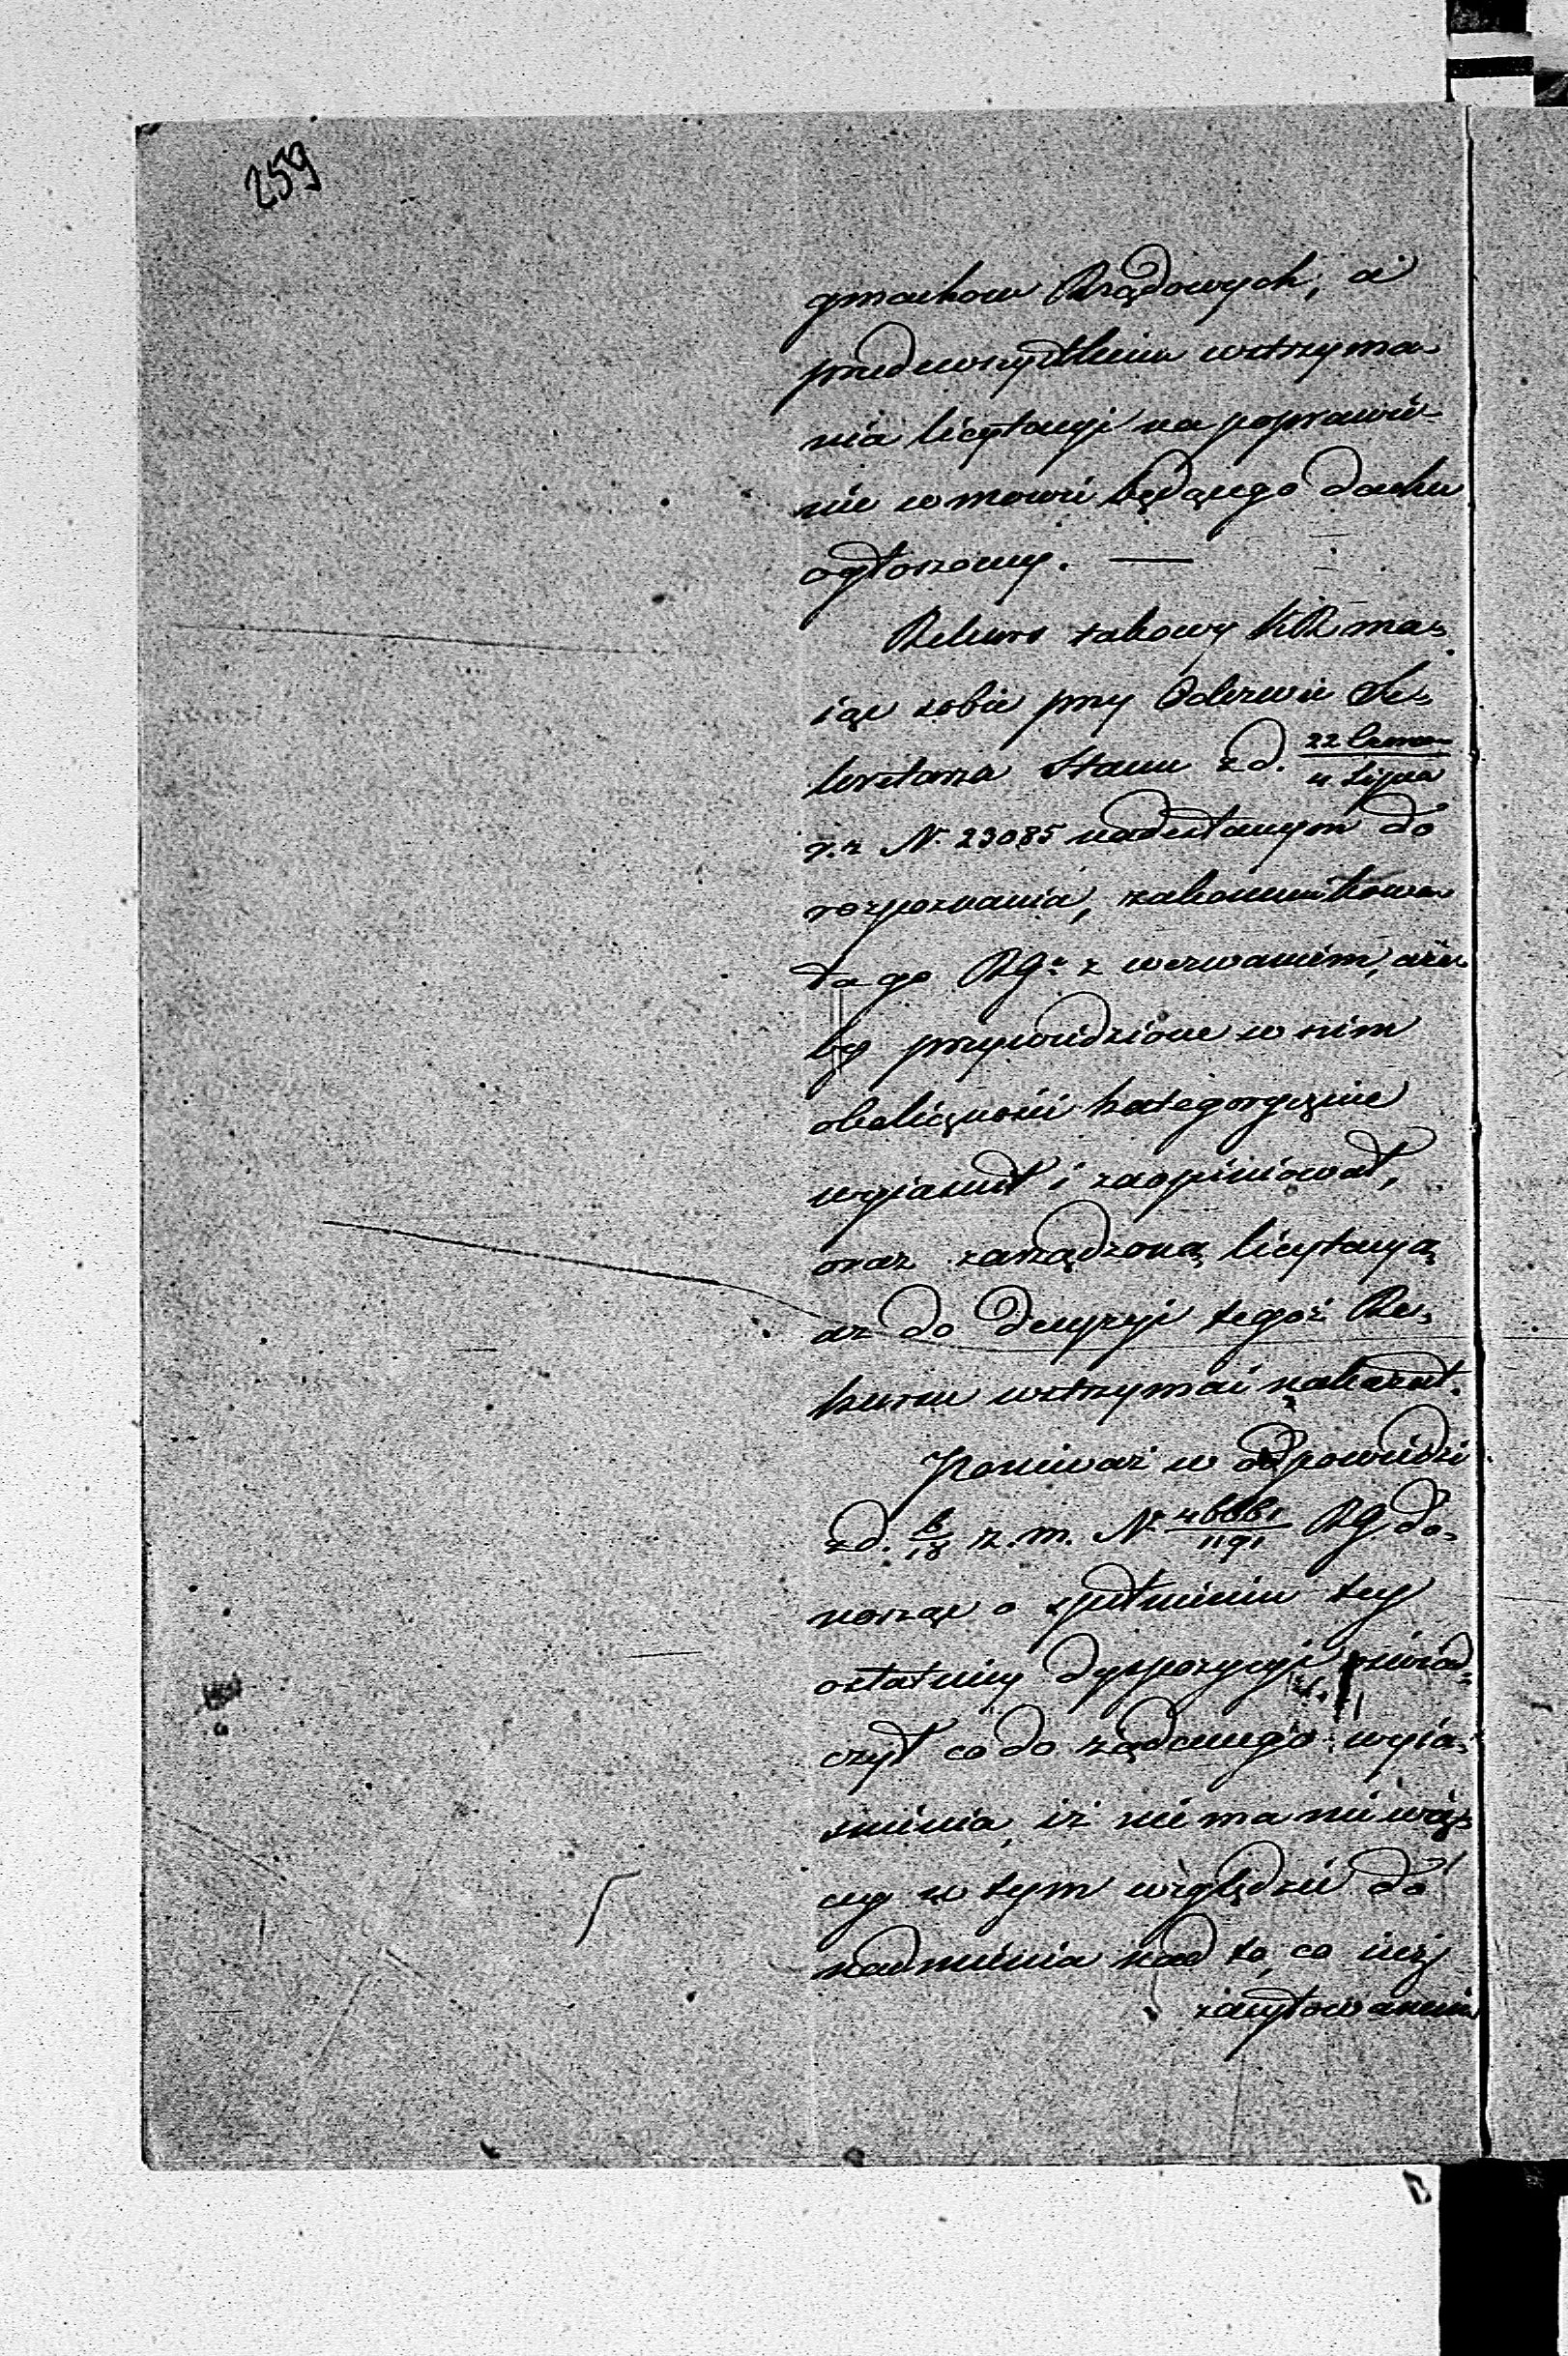 259
gmachow Rządowych, a
przedewszystkiem wstrzyma-
nia licytacyi na poprawie-
nie w mowie będącego dachu
ogłoszoney. —
Rekurs takowy KR ma-
iąc sobie przy Odezwie Se-
kretarza Stanu z d. 22 Czerwca / 4 Lipca
r. z. N. 23085 nadesłanym do
rozpoznania, zakommunikowa-
ła go RGu z wezwaniem, aże-
by przywiedzione w nim
okoliczności kategorycznie
wyjaśnił i zaopiniował,
oraz zarządzoną licytacyą
aż do decyzyi tegoż Re-
kursu wstrzymać nakazał.
Ponieważ w odpowiedzi
z d. 6/18 z. m. N 46661/1191 RG do-
nosząc o spełnieniu tey
ostatniey dyspozycyi oświad-
czył co do żądanego wyia-
śnienia, iż nie ma nic więc-
ey w tym względzie do
nadmienia nad to, co iuż
zacytowaniu